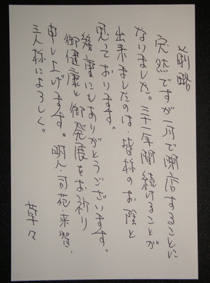 前略
突然ですが一月で閉店することに
なりました。三十一年間続けることが
出来ましたのは、皆様のお陰と
思えております。
本当にありがとうございます。
御健康と御発展をお祈り
申し上げます。明人、来習、
三人様によろしく。
草々